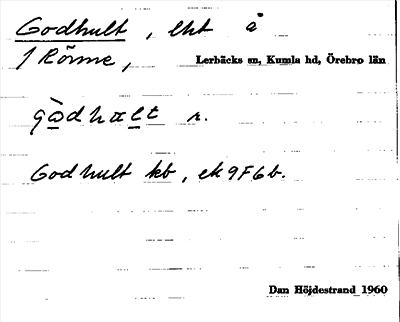 Godhult, lht å
1 Rönne, Lerbäcks sn, Kumla hd, Örebro län
Godhult kb, ek 9F6b.
Dan Höjdestrand 1960